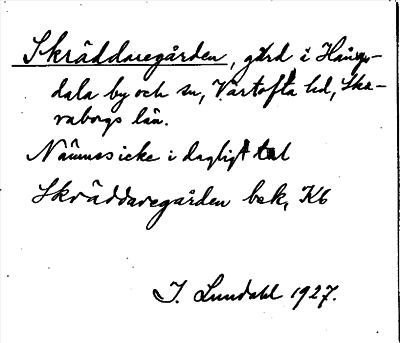 Skräddaregården, gård i Hångs-
dala by och sn, Vartofta hd, Ska-
raborgs län.
Nämnes icke i dagligt tal
Skräddaregården bek, Kb
I. Lundahl 1927.